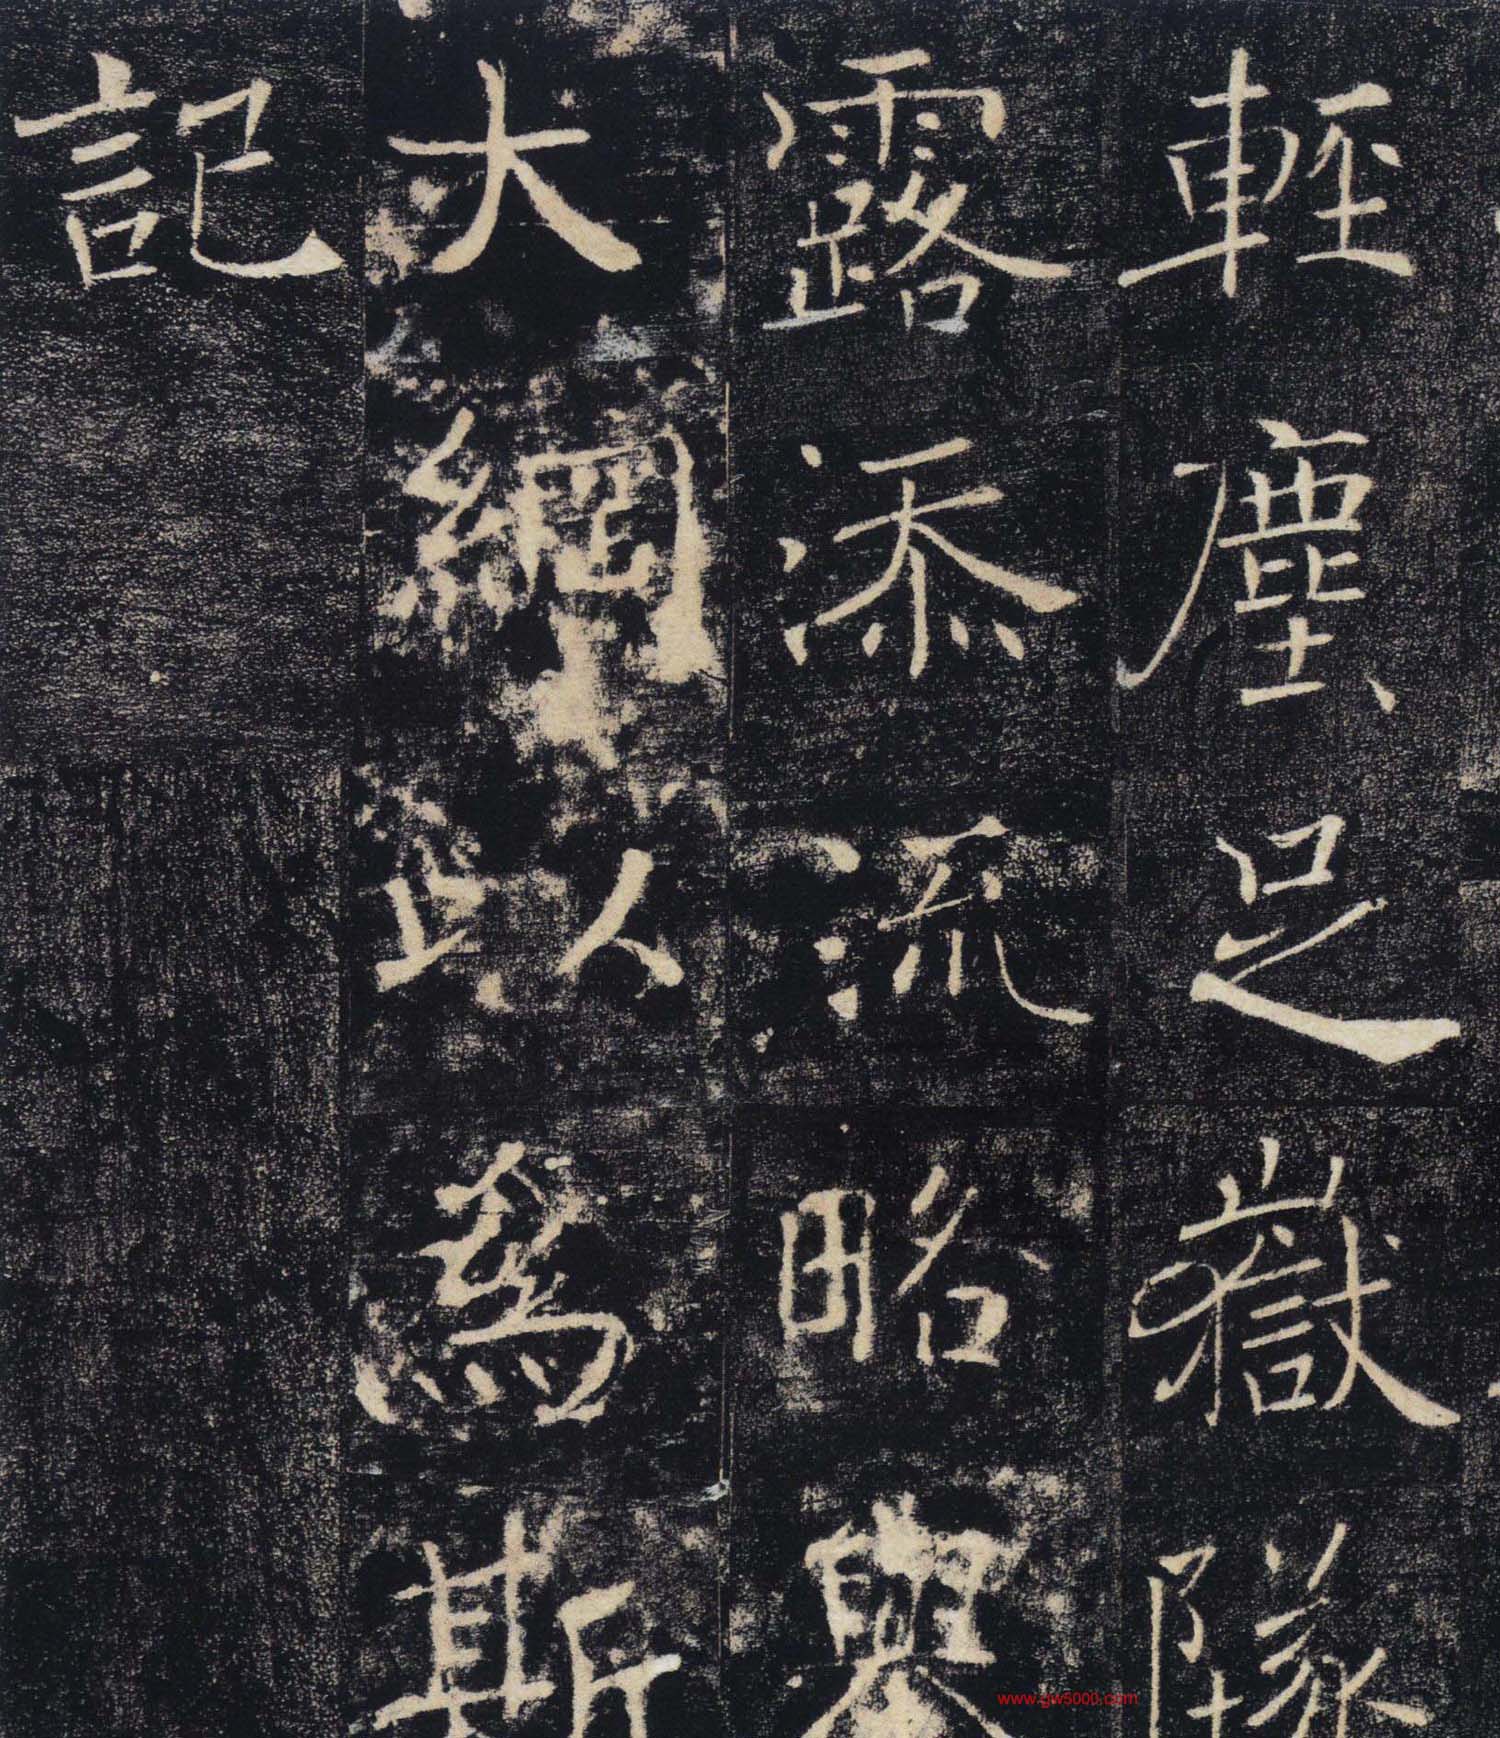 輕塵足嶽墜
露添流略舉
大綱以爲斯
記
www.gw5000.com